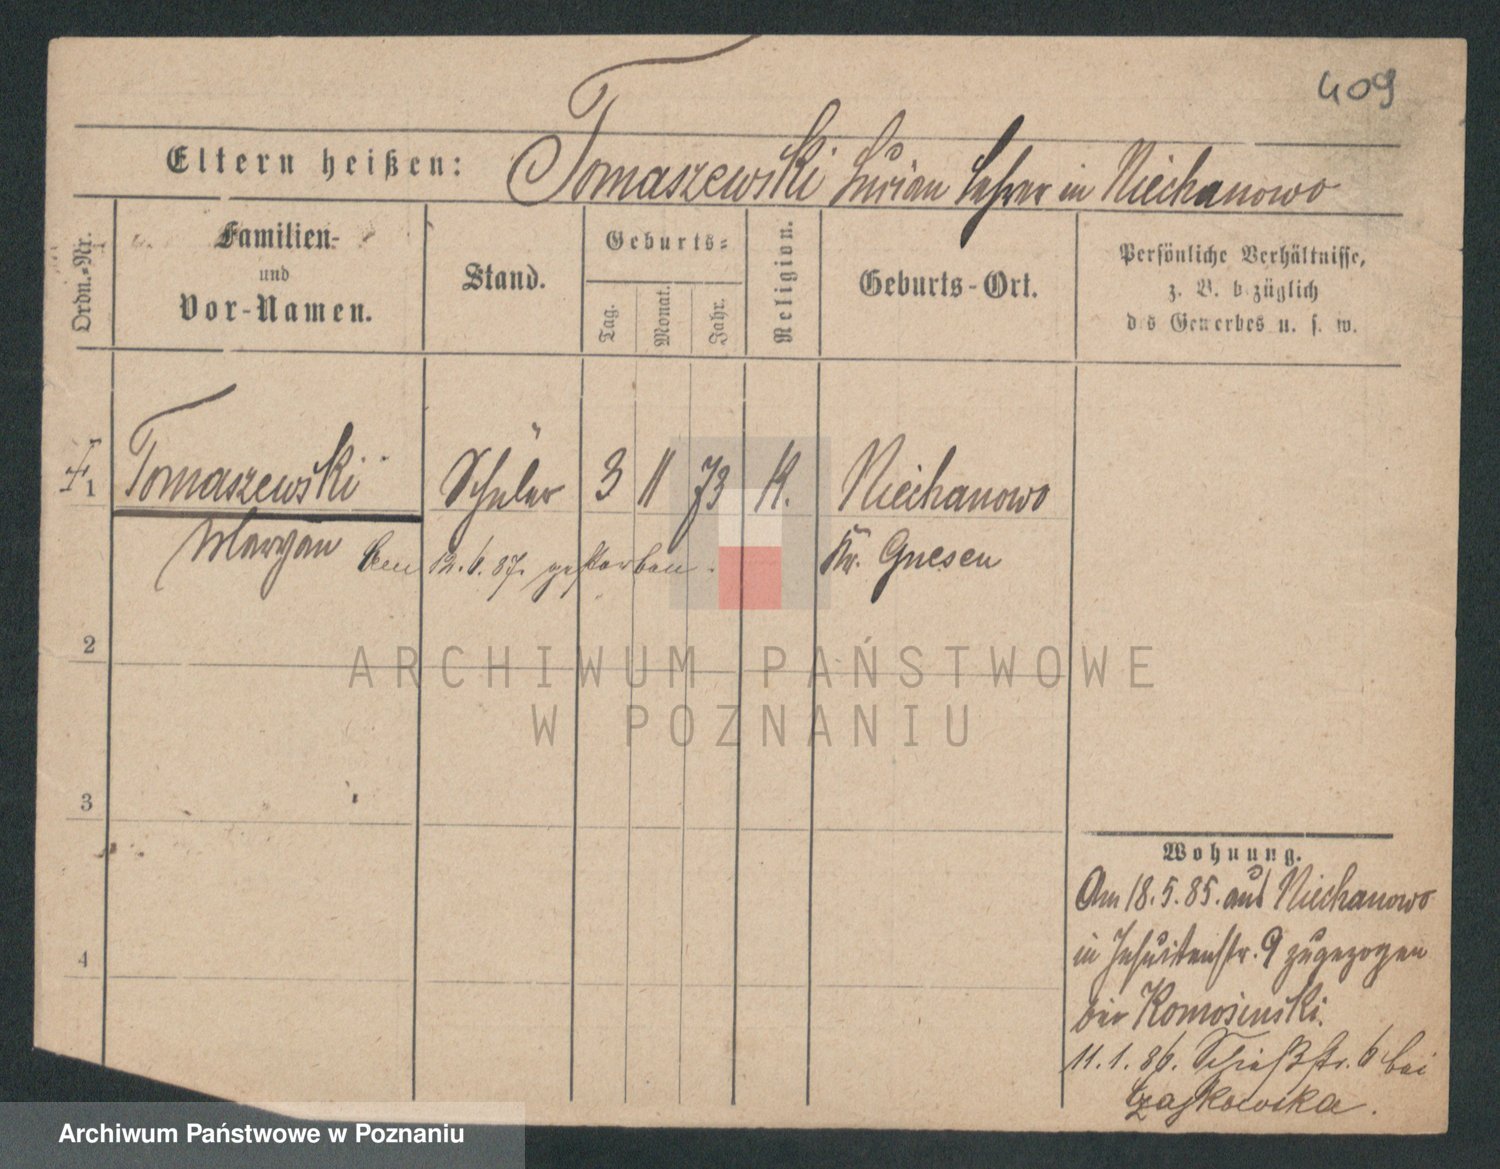 409
Eltern heißen: Tomaszewski Lucian Lehrer in Niechanowo
Ordn.-Nr.
Familien-
und
Vor-Namen.
Stand.
Geburts-
Tag.
Monat.
Jahr.
Religion.
Geburts-Ort.
Persönliche Verhältnisse,
z. B. bezüglich
des Gewerbes u. s. w.
1 Tomaszewski Schüler 3 11 73 K. Niechanowo
Maryan Am 12.6.87. gestorben. Kr. Gnesen
2
ARCHIWUM PAŃSTWOWE
W POZNANIU
3
Wohnung.
Am 18.5.85. aus Niechanowo
in Jesuitenstr. 9 zugezogen
bei Komosinski.
4
11.1.86. Schießstr. 6 bei
Czajkowska.
Archiwum Państwowe w Poznaniu